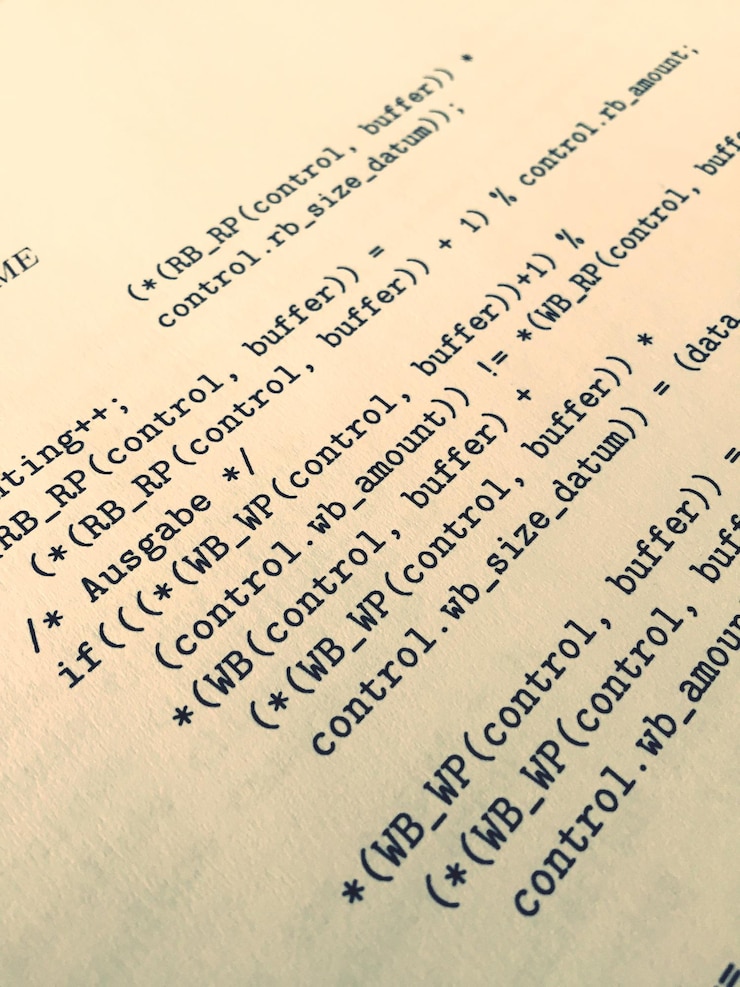 (*(RB_RP(control, buffer)) *
control.rb_size_datum));
ME
iting++;
RB_RP(control, buffer)) =
(*(RB_RP(control, buffer)) + 1) % control.rb_amount;
/* Ausgabe */
if(((*(WB_WP(control, buffer))+1) %
(control.wb_amount)) != *(WB_RP(control, buffe
*(WB(control, buffer) +
(*(WB_WP(control, buffer)) *
control.wb_size_datum)) = (data
*(WB_WP(control, buffer)) =
(*(WB_WP(control, buff
control.wb_amoun
=